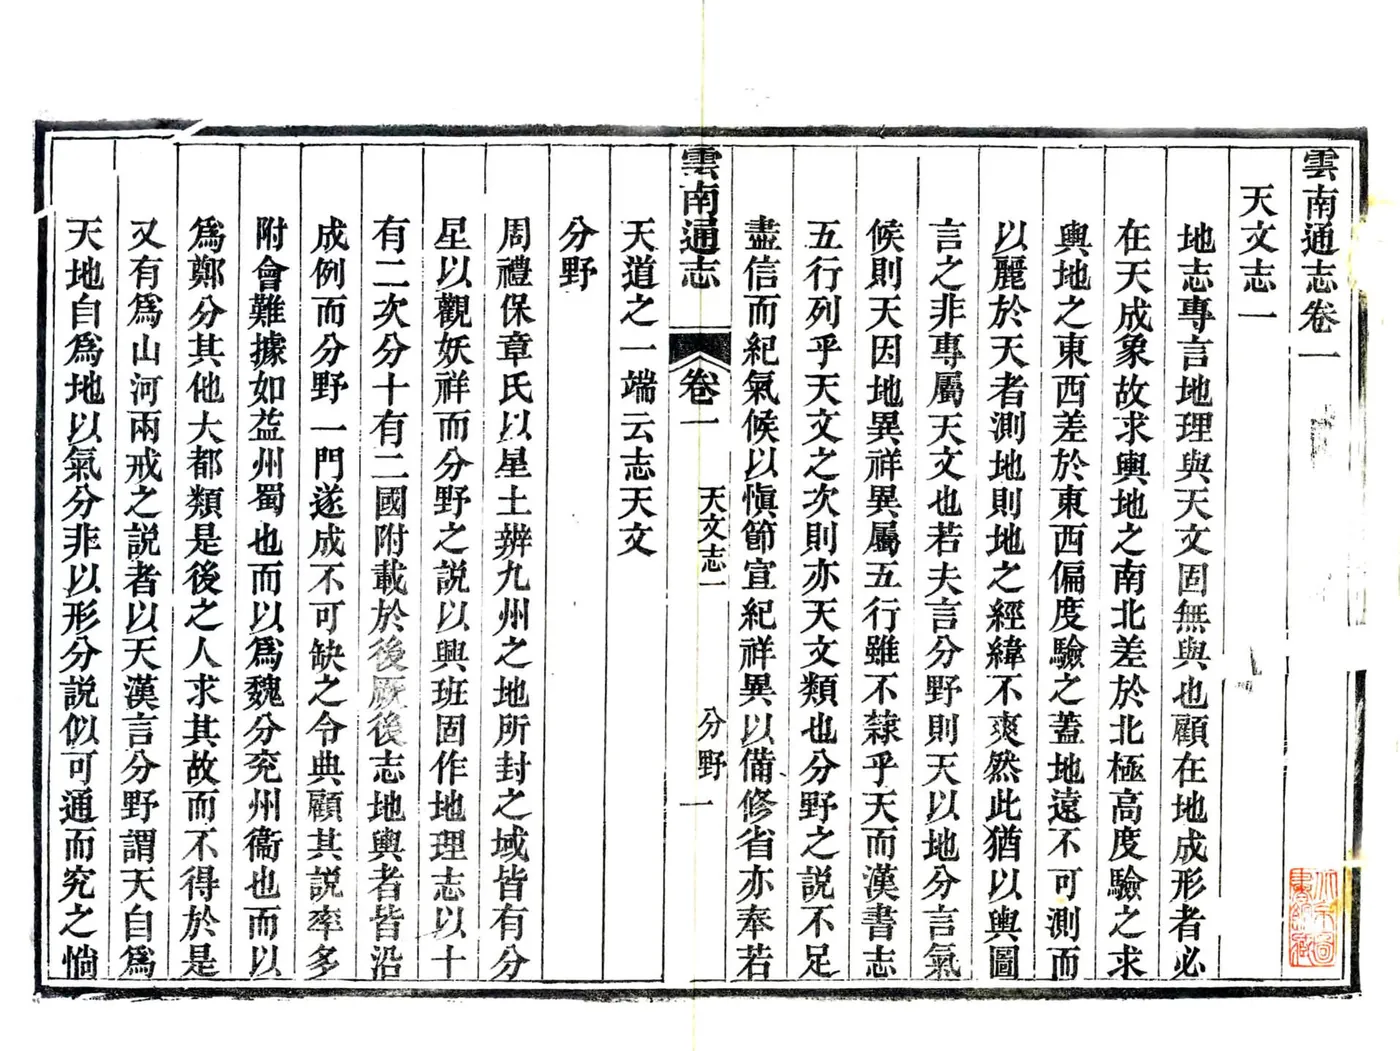 雲南通志卷一
天文志一
地志專言地理與天文固無與也顧在地成形者必
在天成象故求輿地之南北差於北極高度驗之求
輿地之東西差於東西偏度驗之蓋地遠不可測而
以麗於天者測地則地之經緯不爽然此猶以輿圖
言之非專屬天文也若夫言分野則天以地分言氣
候則天因地異祥異屬五行雖不隸乎天而漢書志
五行列乎天文之次則亦天文類也分野之説不足
盡信而紀氣候以愼節宣紀祥異以備修省亦奉若
雲南通志
卷一
天文志一
分野
一
天道之一端云志天文
分野
周禮保章氏以星土辨九州之地所封之域皆有分
星以觀妖祥而分野之説以興班固作地理志以十
有二次分十有二國附載於後厥後志地輿者皆沿
成例而分野一門遂成不可缺之令典顧其説率多
附會難據如益州蜀也而以爲魏分兖州衞也而以
爲鄭分其他大都類是後之人求其故而不得於是
又有爲山河兩戒之説者以天漢言分野謂天自爲
天地自爲地以氣分非以形分説似可通而究之惝